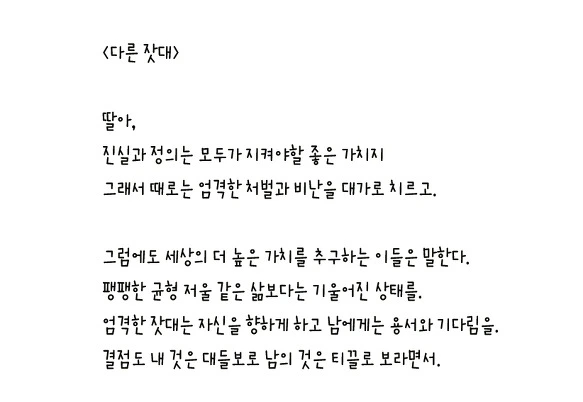 <다른 잣대>
딸아,
진실과 정의는 모두가 지켜야할 좋은 가치지
그래서 때로는 엄격한 처벌과 비난을 대가로 치르고.
그럼에도 세상의 더 높은 가치를 추구하는 이들은 말한다.
팽팽한 균형 저울 같은 삶보다는 기울어진 상태를.
엄격한 잣대는 자신을 향하게 하고 남에게는 용서와 기다림을.
결점도 내 것은 대들보로 남의 것은 티끌로 보라면서.